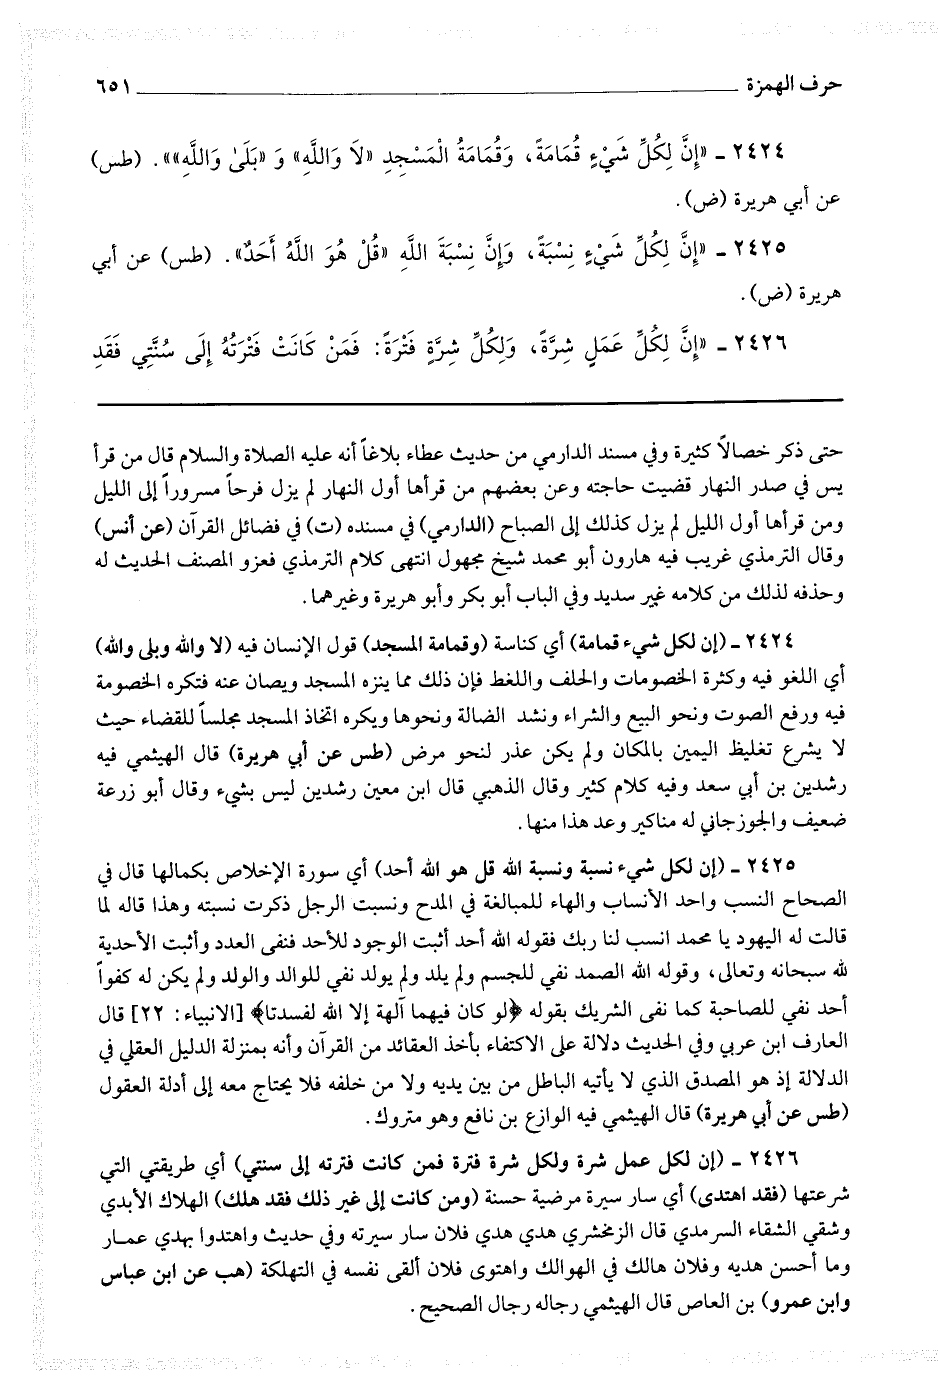 حرف الهمزة ٦٥١
٢٤٢٤ ـ «إِنَّ لِكُلِّ شَيْءٍ قُمَامَةً، وَقُمَامَةُ الْمَسْجِدِ «لَا وَاللَّهِ» وَ «بَلَىٰ وَاللَّهِ»». (طس)
عن أبي هريرة (ض).
٢٤٢٥ ـ «إِنَّ لِكُلِّ شَيْءٍ نِسْبَةً، وَإِنَّ نِسْبَةَ اللَّهِ «قُلْ هُوَ اللَّهُ أَحَدٌ». (طس) عن أبي
هريرة (ض).
٢٤٢٦ ـ «إِنَّ لِكُلِّ عَمَلٍ شِرَّةً، وَلِكُلِّ شِرَّةٍ فَتْرَةً: فَمَنْ كَانَتْ فَتْرَتُهُ إِلَى سُنَّتِي فَقَدِ
حتى ذكر خصالاً كثيرة وفي مسند الدارمي من حديث عطاء بلاغاً أنه عليه الصلاة والسلام قال من قرأ
يس في صدر النهار قضيت حاجته وعن بعضهم من قرأها أول النهار لم يزل فرحاً مسروراً إلى الليل
ومن قرأها أول الليل لم يزل كذلك إلى الصباح (الدارمي) في مسنده (ت) في فضائل القرآن (عن أنس)
وقال الترمذي غريب فيه هارون أبو محمد شيخ مجهول انتهى كلام الترمذي فعزو المصنف الحديث له
وحذفه لذلك من كلامه غير سديد وفي الباب أبو بكر وأبو هريرة وغيرهما.
٢٤٢٤ ـ (إن لكل شيء قمامة) أي كناسة (وقمامة المسجد) قول الإنسان فيه (لا والله وبلى والله)
أي اللغو فيه وكثرة الخصومات والحلف واللغط فإن ذلك مما ينزه المسجد ويصان عنه فتكره الخصومة
فيه ورفع الصوت ونحو البيع والشراء ونشد الضالة ونحوها ويكره اتخاذ المسجد مجلساً للقضاء حيث
لا يشرع تغليظ اليمين بالمكان ولم يكن عذر لنحو مرض (طس عن أبي هريرة) قال الهيثمي فيه
رشدين بن أبي سعد وفيه كلام كثير وقال الذهبي قال ابن معين رشدين ليس بشيء وقال أبو زرعة
ضعيف والجوزجاني له مناكير وعد هذا منها.
٢٤٢٥ ـ (إن لكل شيء نسبة ونسبة الله قل هو الله أحد) أي سورة الإخلاص بكمالها قال في
الصحاح النسب واحد الأنساب والهاء للمبالغة في المدح ونسبت الرجل ذكرت نسبته وهذا قاله لما
قالت له اليهود يا محمد انسب لنا ربك فقوله الله أحد أثبت الوجود للأحد فنفى العدد وأثبت الأحدية
لله سبحانه وتعالى، وقوله الله الصمد نفي للجسم ولم يلد ولم يولد نفي للوالد والولد ولم يكن له كفواً
أحد نفي للصاحبة كما نفى الشريك بقوله ﴿لو كان فيهما آلهة إلا الله لفسدتا﴾ [الانبياء: ٢٢] قال
العارف ابن عربي وفي الحديث دلالة على الاكتفاء بأخذ العقائد من القرآن وأنه بمنزلة الدليل العقلي في
الدلالة إذ هو المصدق الذي لا يأتيه الباطل من بين يديه ولا من خلفه فلا يحتاج معه إلى أدلة العقول
(طس عن أبي هريرة) قال الهيثمي فيه الوازع بن نافع وهو متروك.
٢٤٢٦ ـ (إن لكل عمل شرة ولكل شرة فترة فمن كانت فترته إلى سنتي) أي طريقتي التي
شرعتها (فقد اهتدى) أي سار سيرة مرضية حسنة (ومن كانت إلى غير ذلك فقد هلك) الهلاك الأبدي
وشقي الشقاء السرمدي قال الزمخشري هدي هدي فلان سار سيرته وفي حديث واهتدوا بهدي عمار
وما أحسن هديه وفلان هالك في الهوالك واهتوى فلان ألقى نفسه في التهلكة (هب عن ابن عباس
وابن عمرو) بن العاص قال الهيثمي رجاله رجال الصحيح.